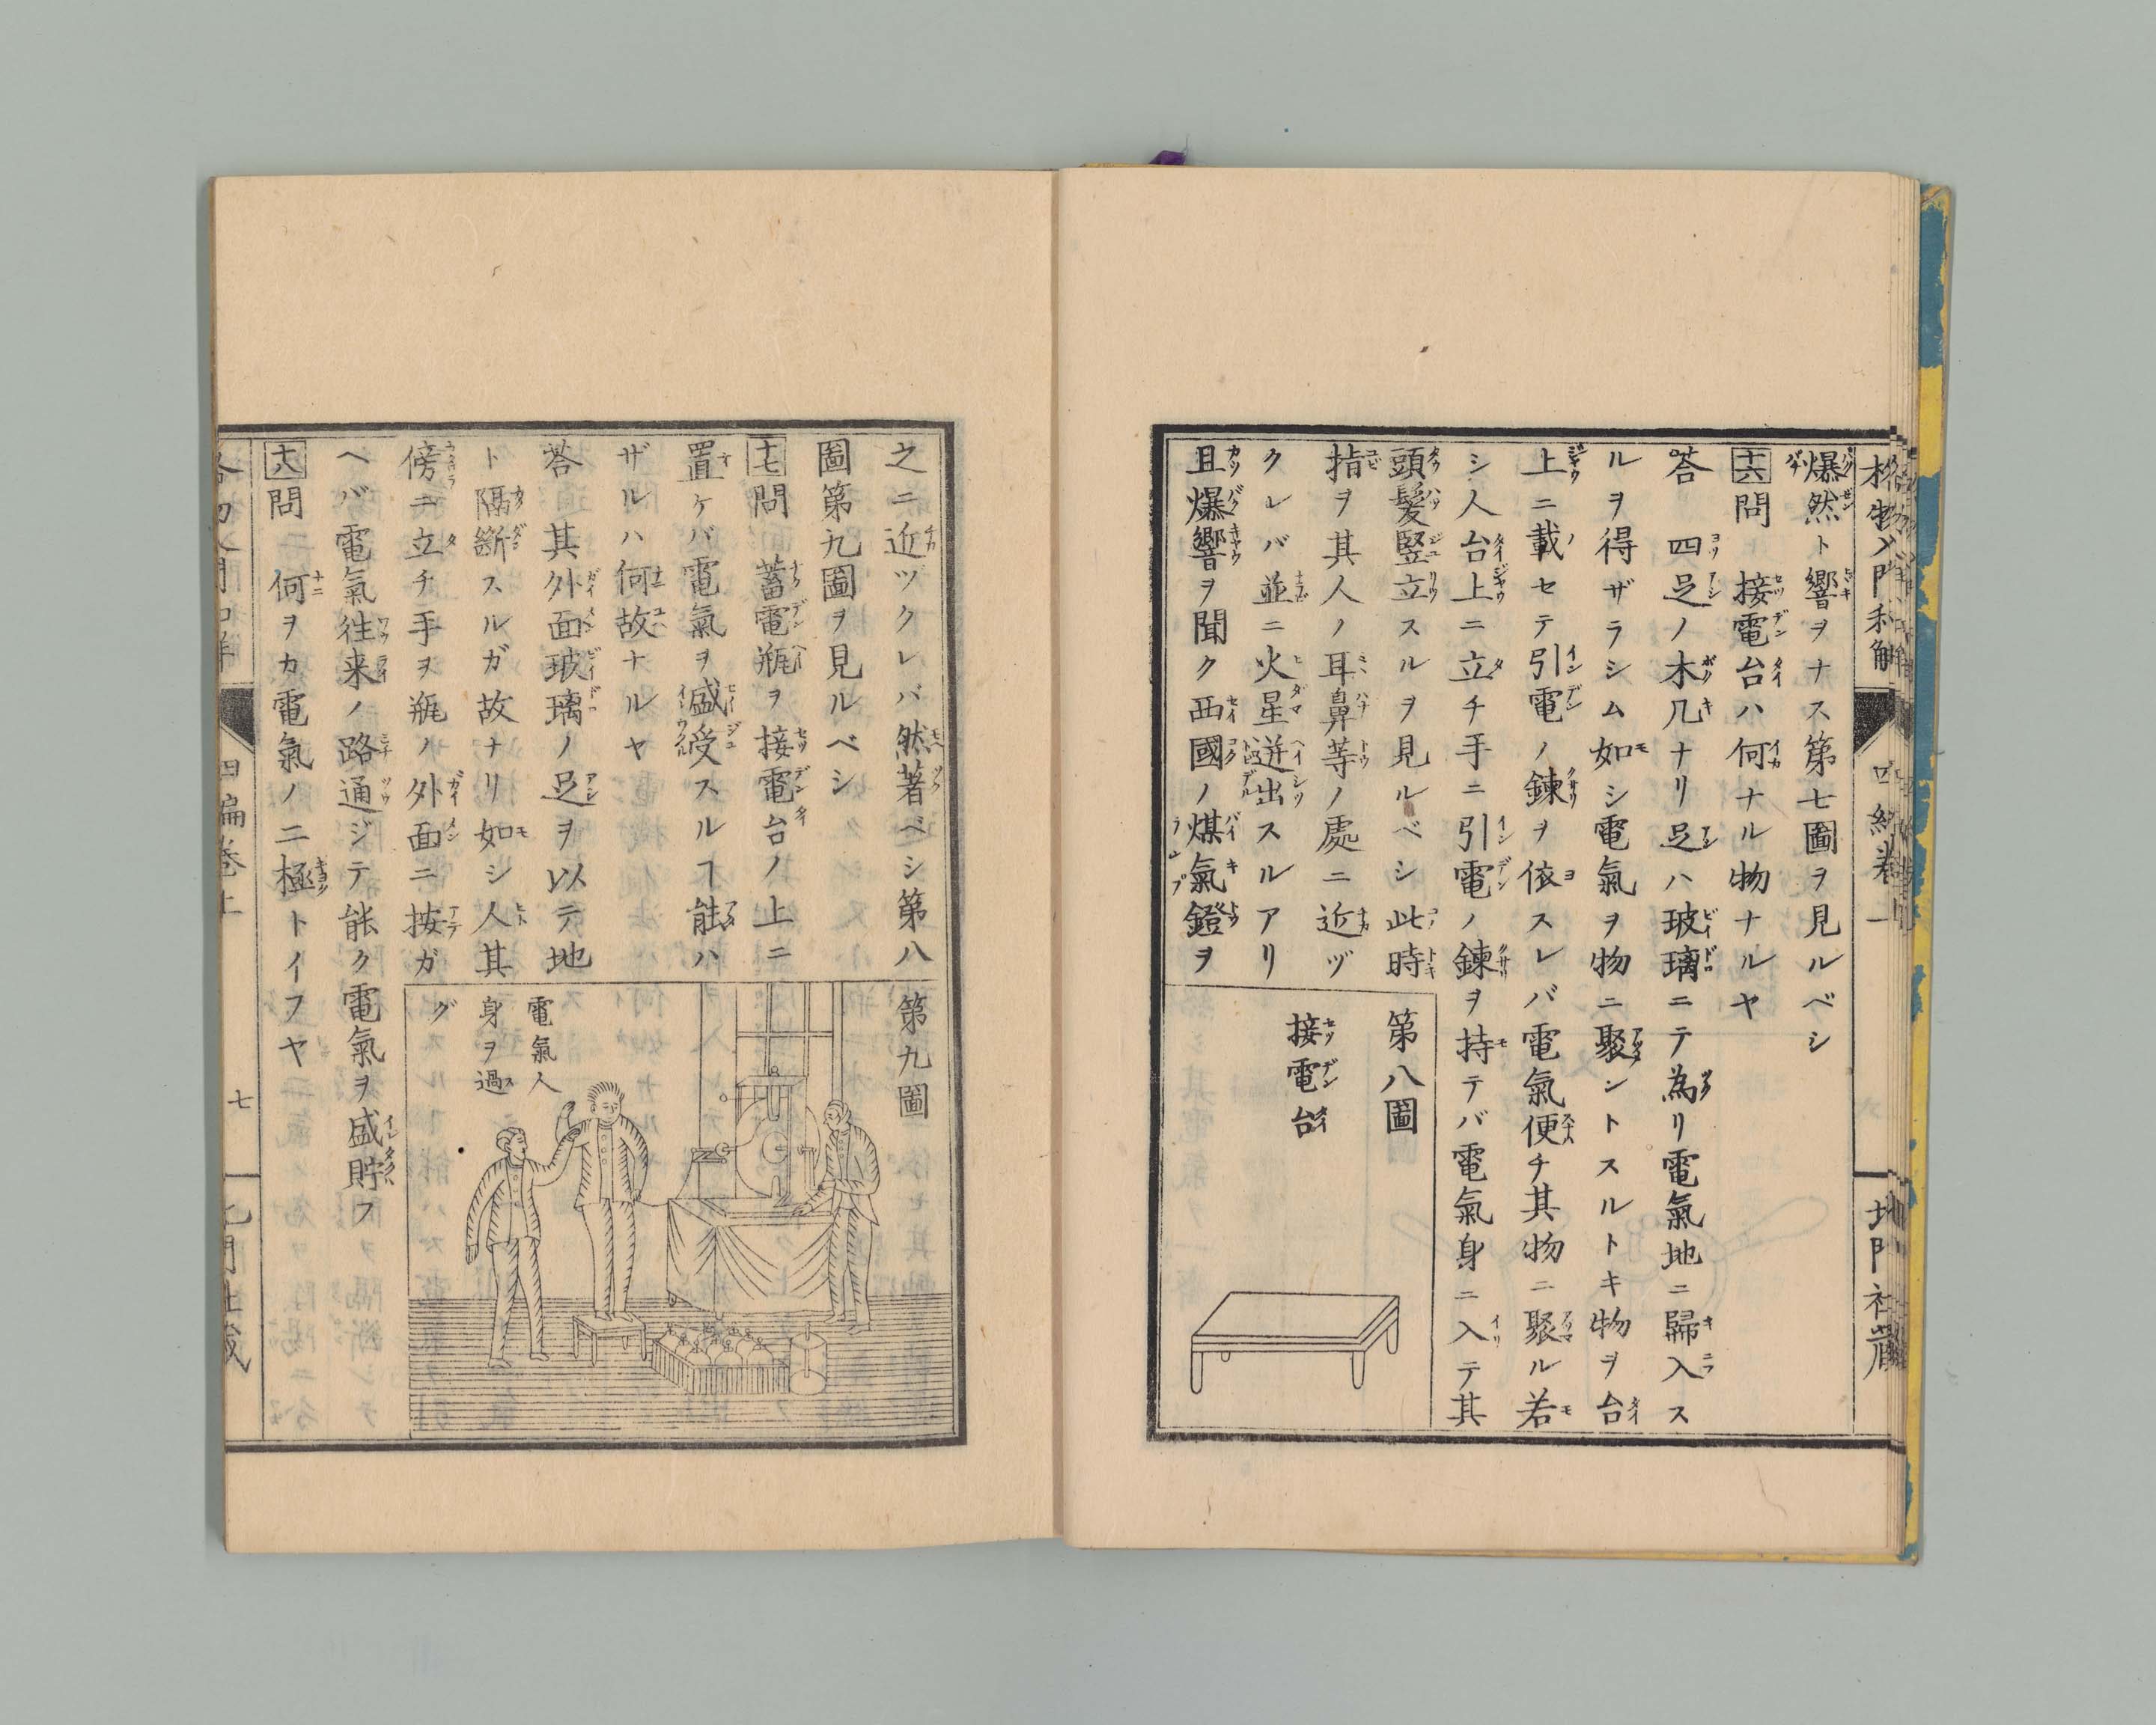 格物入門和解
爆然ト響ヲナス第七圖ヲ見ルベシ
十六 問 接電台ハ何ナル物ナルヤ
答 四足ノ木几ナリ足ハ玻璃ニテ為リ電氣地ニ歸入ス
ルヲ得ザラシム如シ電氣ヲ物ニ聚ントスルトキ物ヲ台
上ニ載セテ引電ノ鍊ヲ依スレバ電氣便チ其物ニ聚ル若
シ人台上ニ立チ手ニ引電ノ鍊ヲ持テバ電氣身ニ入テ其
頭髮竪立スルヲ見ルベシ此時
指ヲ其人ノ耳鼻等ノ處ニ近ヅ
クレバ並ニ火星迸出スルアリ
且爆響ヲ聞ク西國ノ煤氣鐙ヲ
第八圖
接電台
之ニ近ツクレバ然著ベシ第八
圖第九圖ヲ見ルベシ
十七 問 蓄電瓶ヲ接電台ノ上ニ
置ケバ電氣ヲ盛受スルヿ能ハ
ザルハ何故ナルヤ
答 其外面玻璃ノ足ヲ以テ地
ト隔斷スルガ故ナリ如シ人其
傍ニ立チ手ヲ瓶ノ外面ニ按ガ
ヘバ電氣往来ノ路通ジテ能ク電氣ヲ盛貯フ
十八 問 何ヲカ電氣ノ二極トイフヤ
第九圖
電氣人
身ヲ過
グ
四編卷上
七